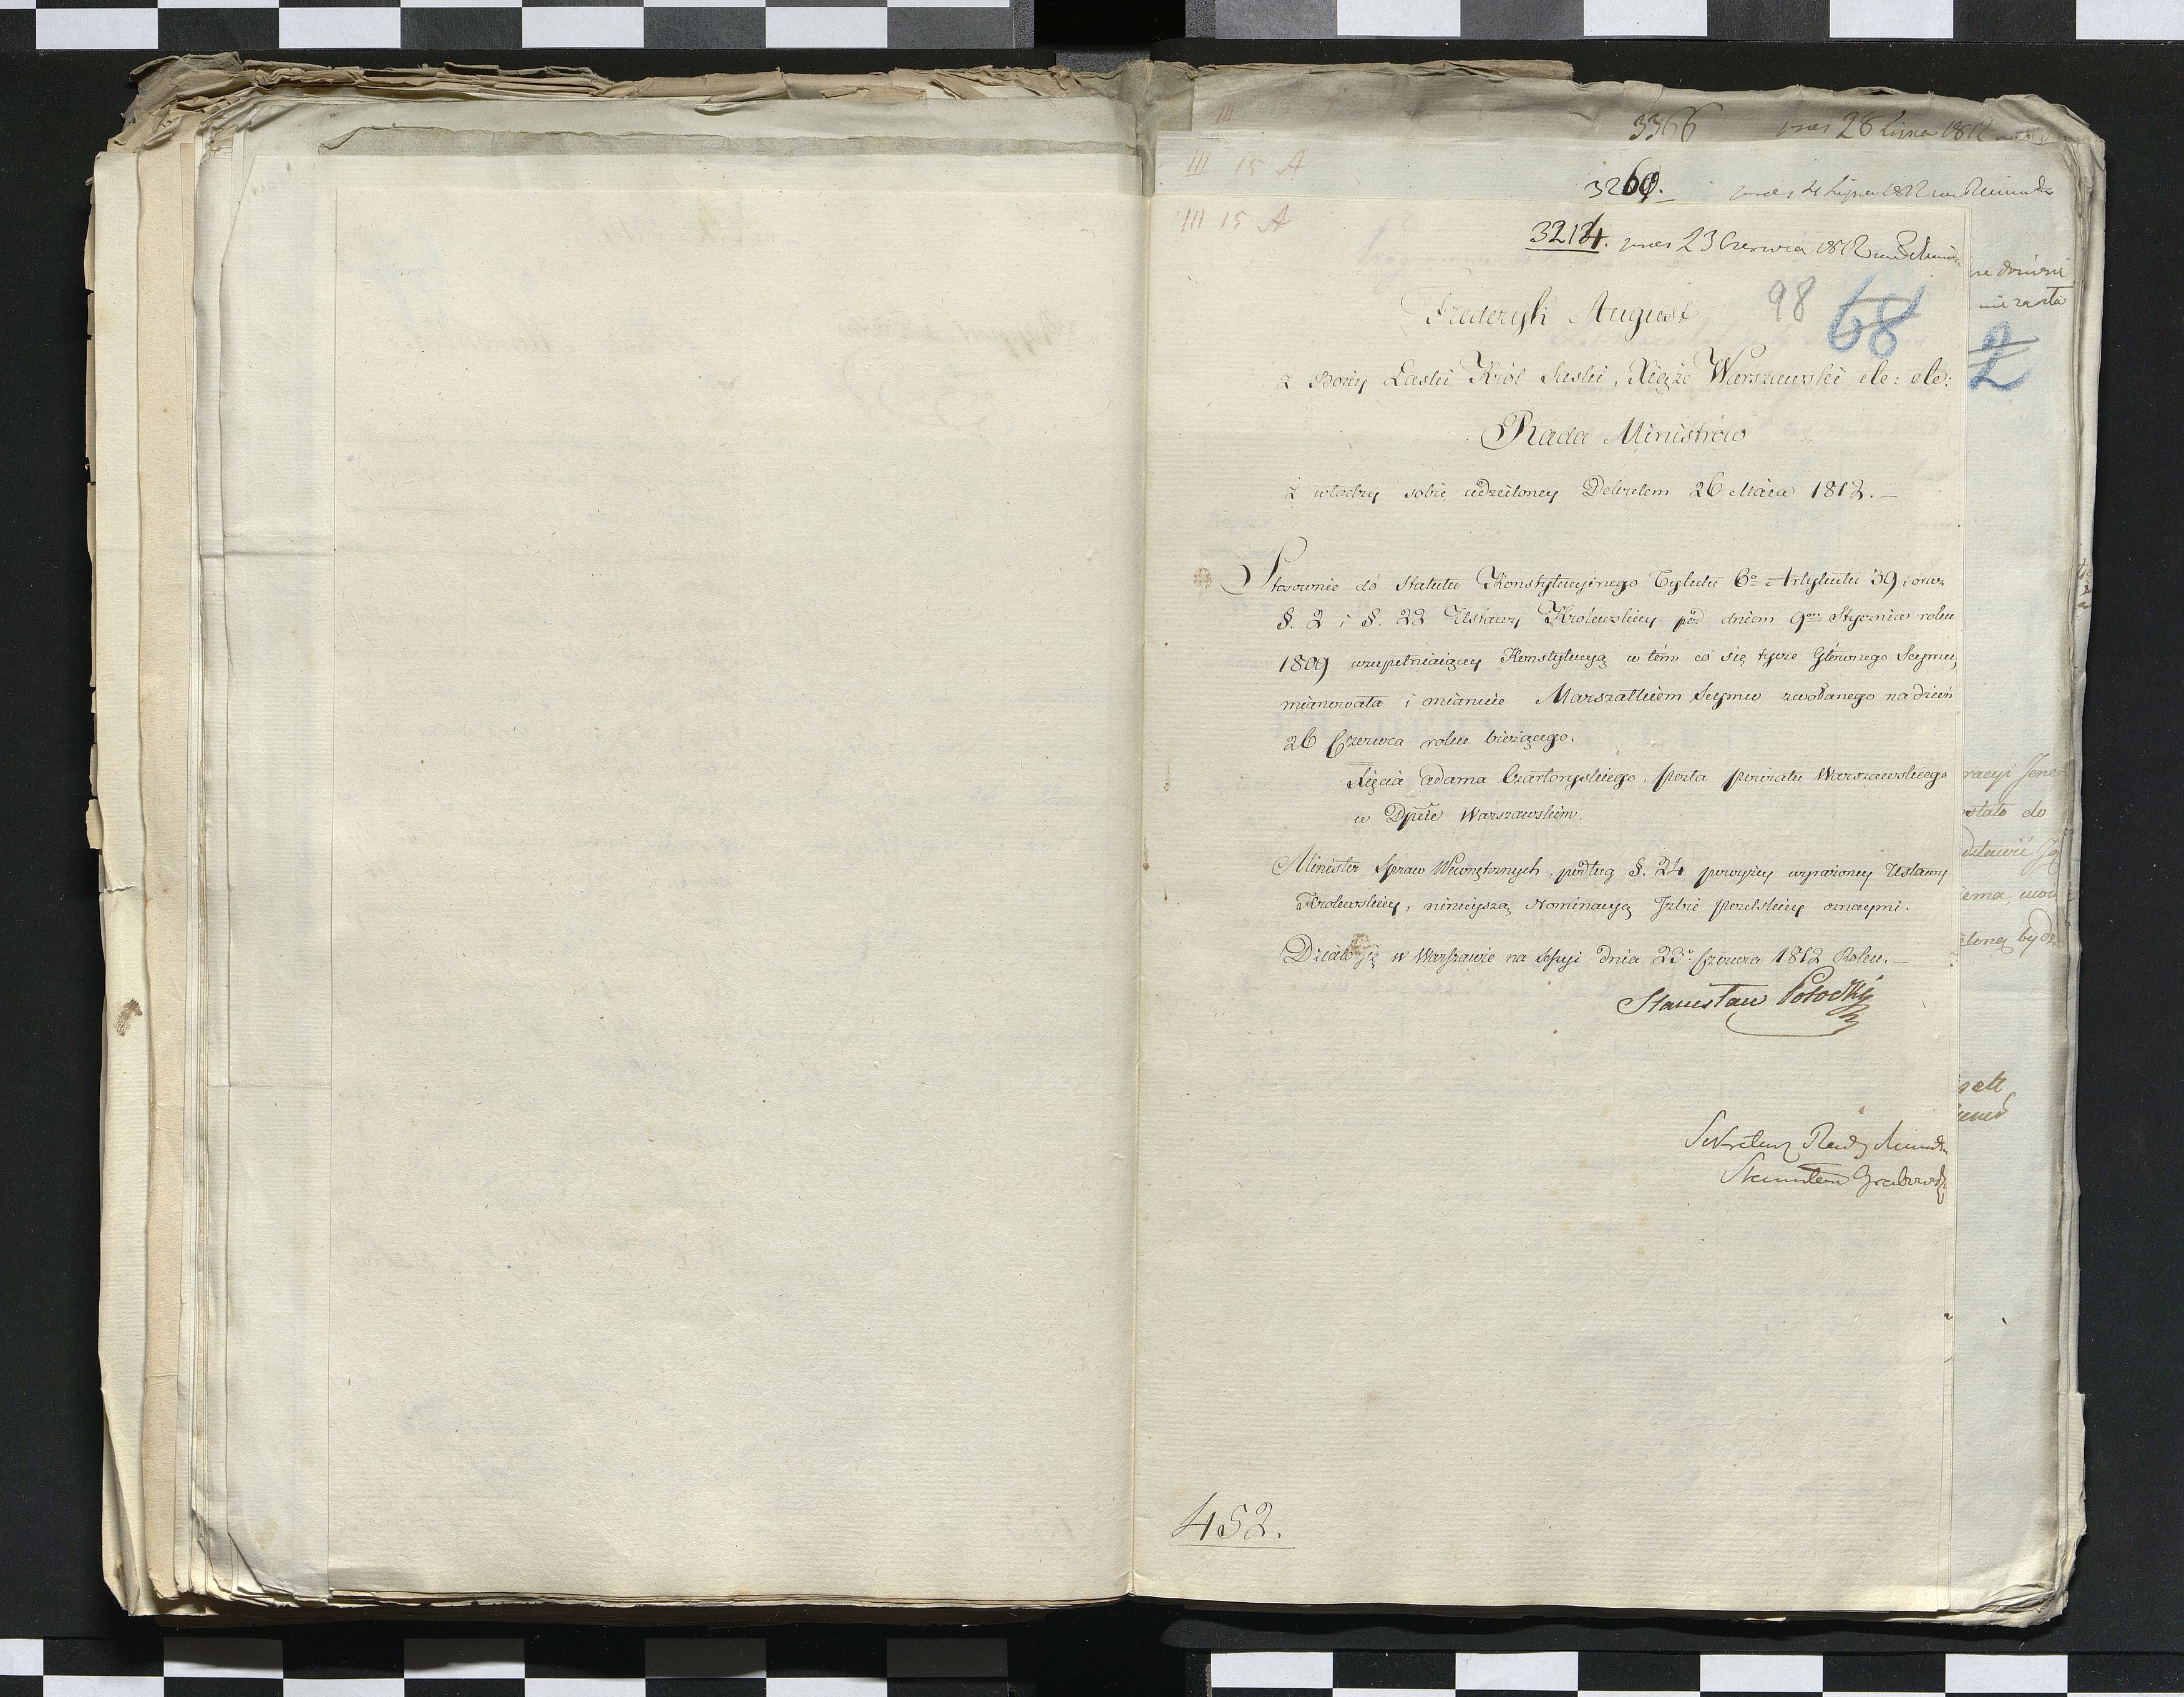 III
3366 28 Lipca 1812
III 15 A
3260. 4 Lipca 1812
III 15 A
3214. 23 Czerwca 1812
98 68
Frederyk August
z Bożey Łaski Król Saski, Xiąże Warszawski etc: etc:
Rada Ministrów
z władzy sobie udzieloney Dekretem 26 Maia 1812. —
Stosownie do Statutu Konstytucyinego Tytułu 6º Artykułu 39, oraz
§. 2 i §. 22 Ustawy Królewskiey pod dniem 9 Stycznia roku
1809 uzupełniaiącey Konstytucyą w tém co się tycze Głównego Seymu,
mianowała i mianuie Marszałkiem Seymu zwołanego na dzień
26 Czerwca roku bieżącego.
Xięcia Adama Czartoryskiego, posła powiatu Warszawskiego
w Dpcie Warszawskim.
Minister Spraw Wewnętrznych, podług §. 24 powyżey wyrażoney Ustawy
Krolewskiey, ninieyszą Nominacyą Izbie Poselskiey oznaymi.
Działo się w Warszawie na Sessyi dnia 23º Czerwca 1812 Roku. —
Stanisław Potocki
Sekretarz Rady Ministrów
Stanisław Grabowski
452.
2
racyi Jene
stało do